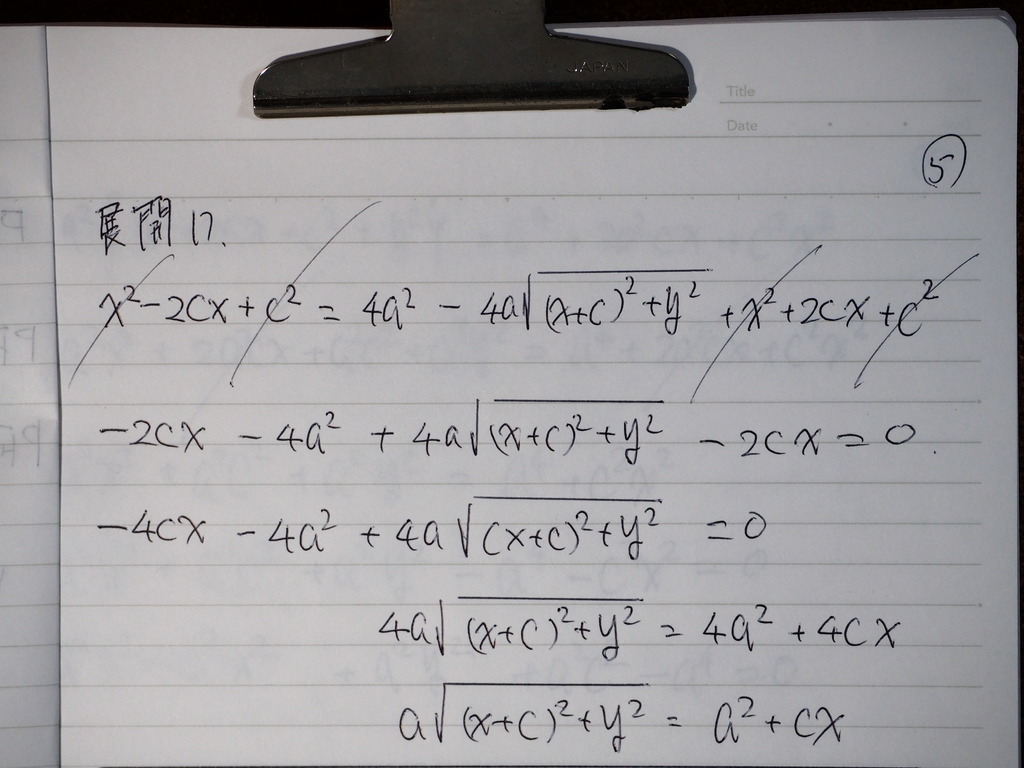 JAPAN
Title
Date
⑤
展開け.
x² - 2cx + c² = 4a² - 4a√((x+c)² + y²) + x² + 2cx + c²
-2cx - 4a² + 4a√((x+c)² + y²) - 2cx = 0.
-4cx - 4a² + 4a√((x+c)² + y²) = 0
4a√((x+c)² + y²) = 4a² + 4cx
a√((x+c)² + y²) = a² + cx